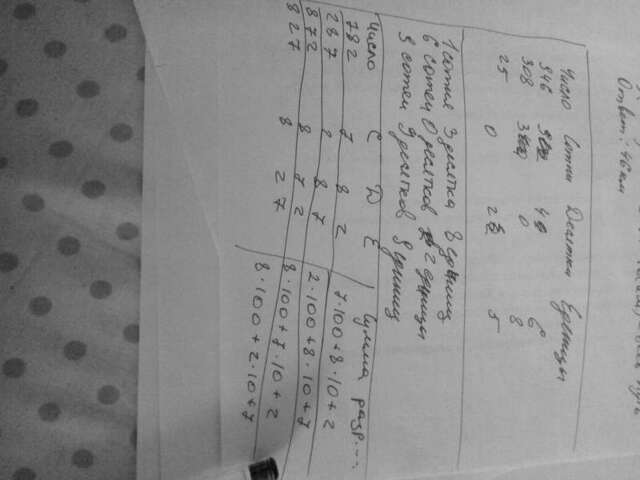 Ответ: 46 км
Число Сотни Десятки Единицы
946 9 4 6
308 3 0 8
25 0 2 5
1 сотня 3 десятка 8 единиц
6 сотен 0 десятков 2 единицы
9 сотен 9 десятков 9 единиц
Число С Д Е Сумма разр...
782 7 8 2 7·100+8·10+2
287 2 8 7 2·100+8·10+7
872 8 7 2 8·100+7·10+2
827 8 2 7 8·100+2·10+7